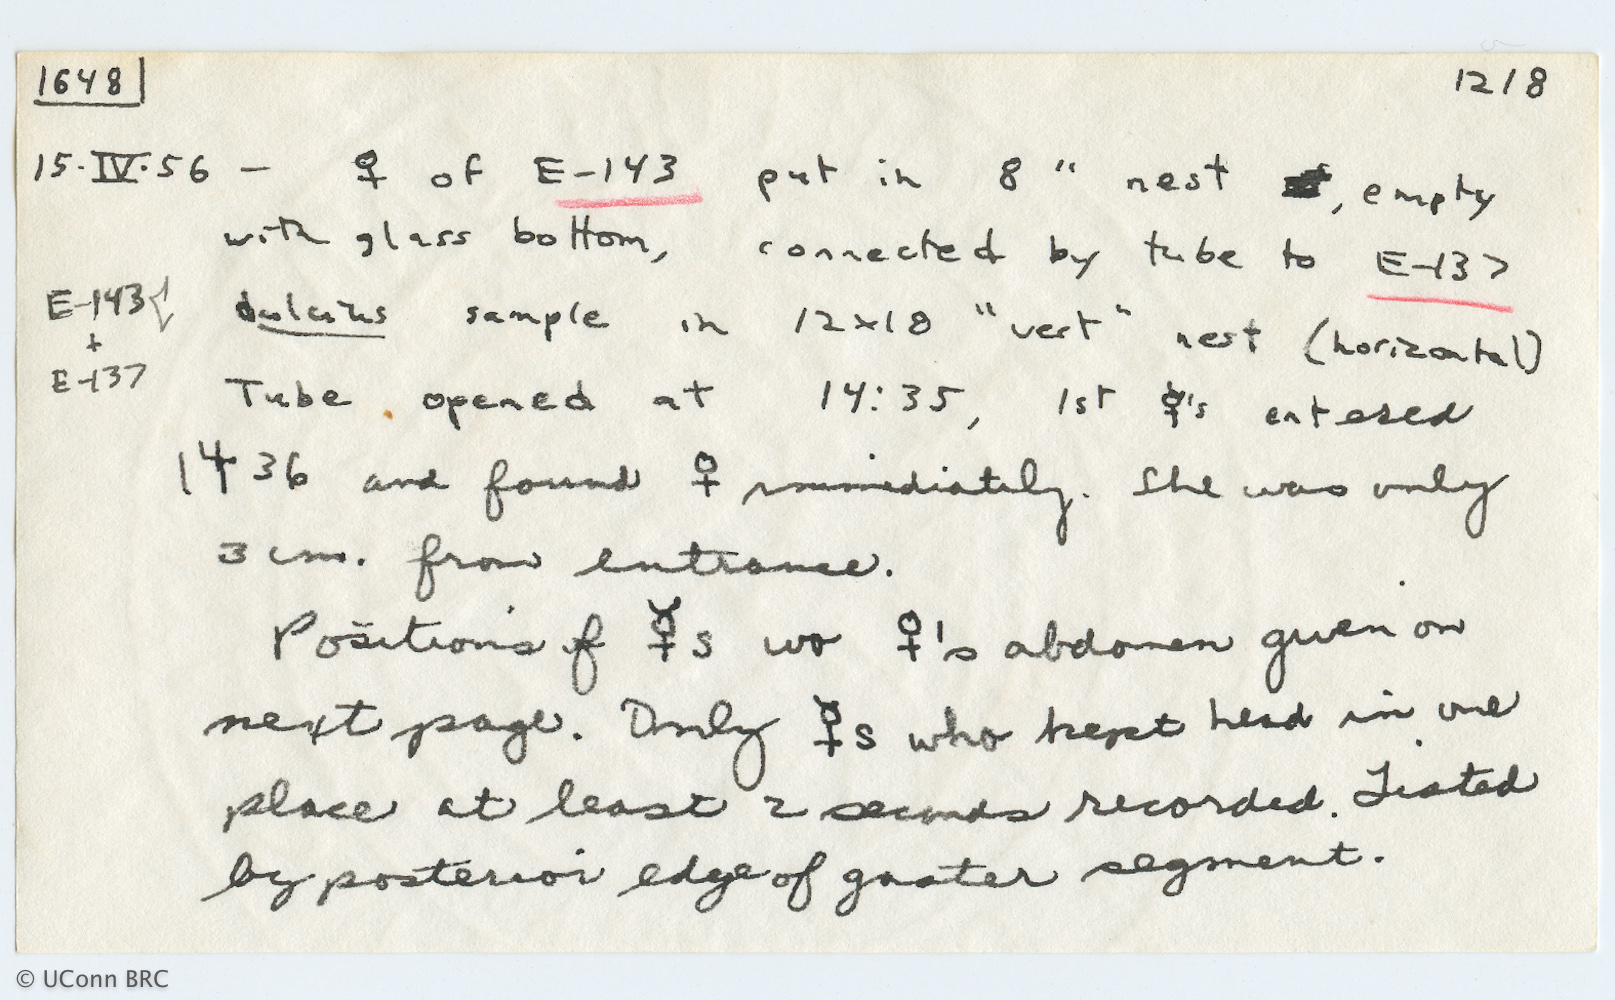 1648
1218
15·IV·56 — ♀ of E-143 put in 8" nest, empty
with glass bottom, connected by tube to E-137
E-143
+
E-137
sample in 12x18 "vert" nest (horizontal)
Tube opened at 14:35, 1st ☿'s entered
1436 and found ♀ immediately. She was only
3 cm. from entrance.
Positions of ☿s wo ♀'s abdomen given on
next page. Only ☿s who kept head in one
place at least 2 seconds recorded. Listed
by posterior edge of gaster segment.
© UConn BRC